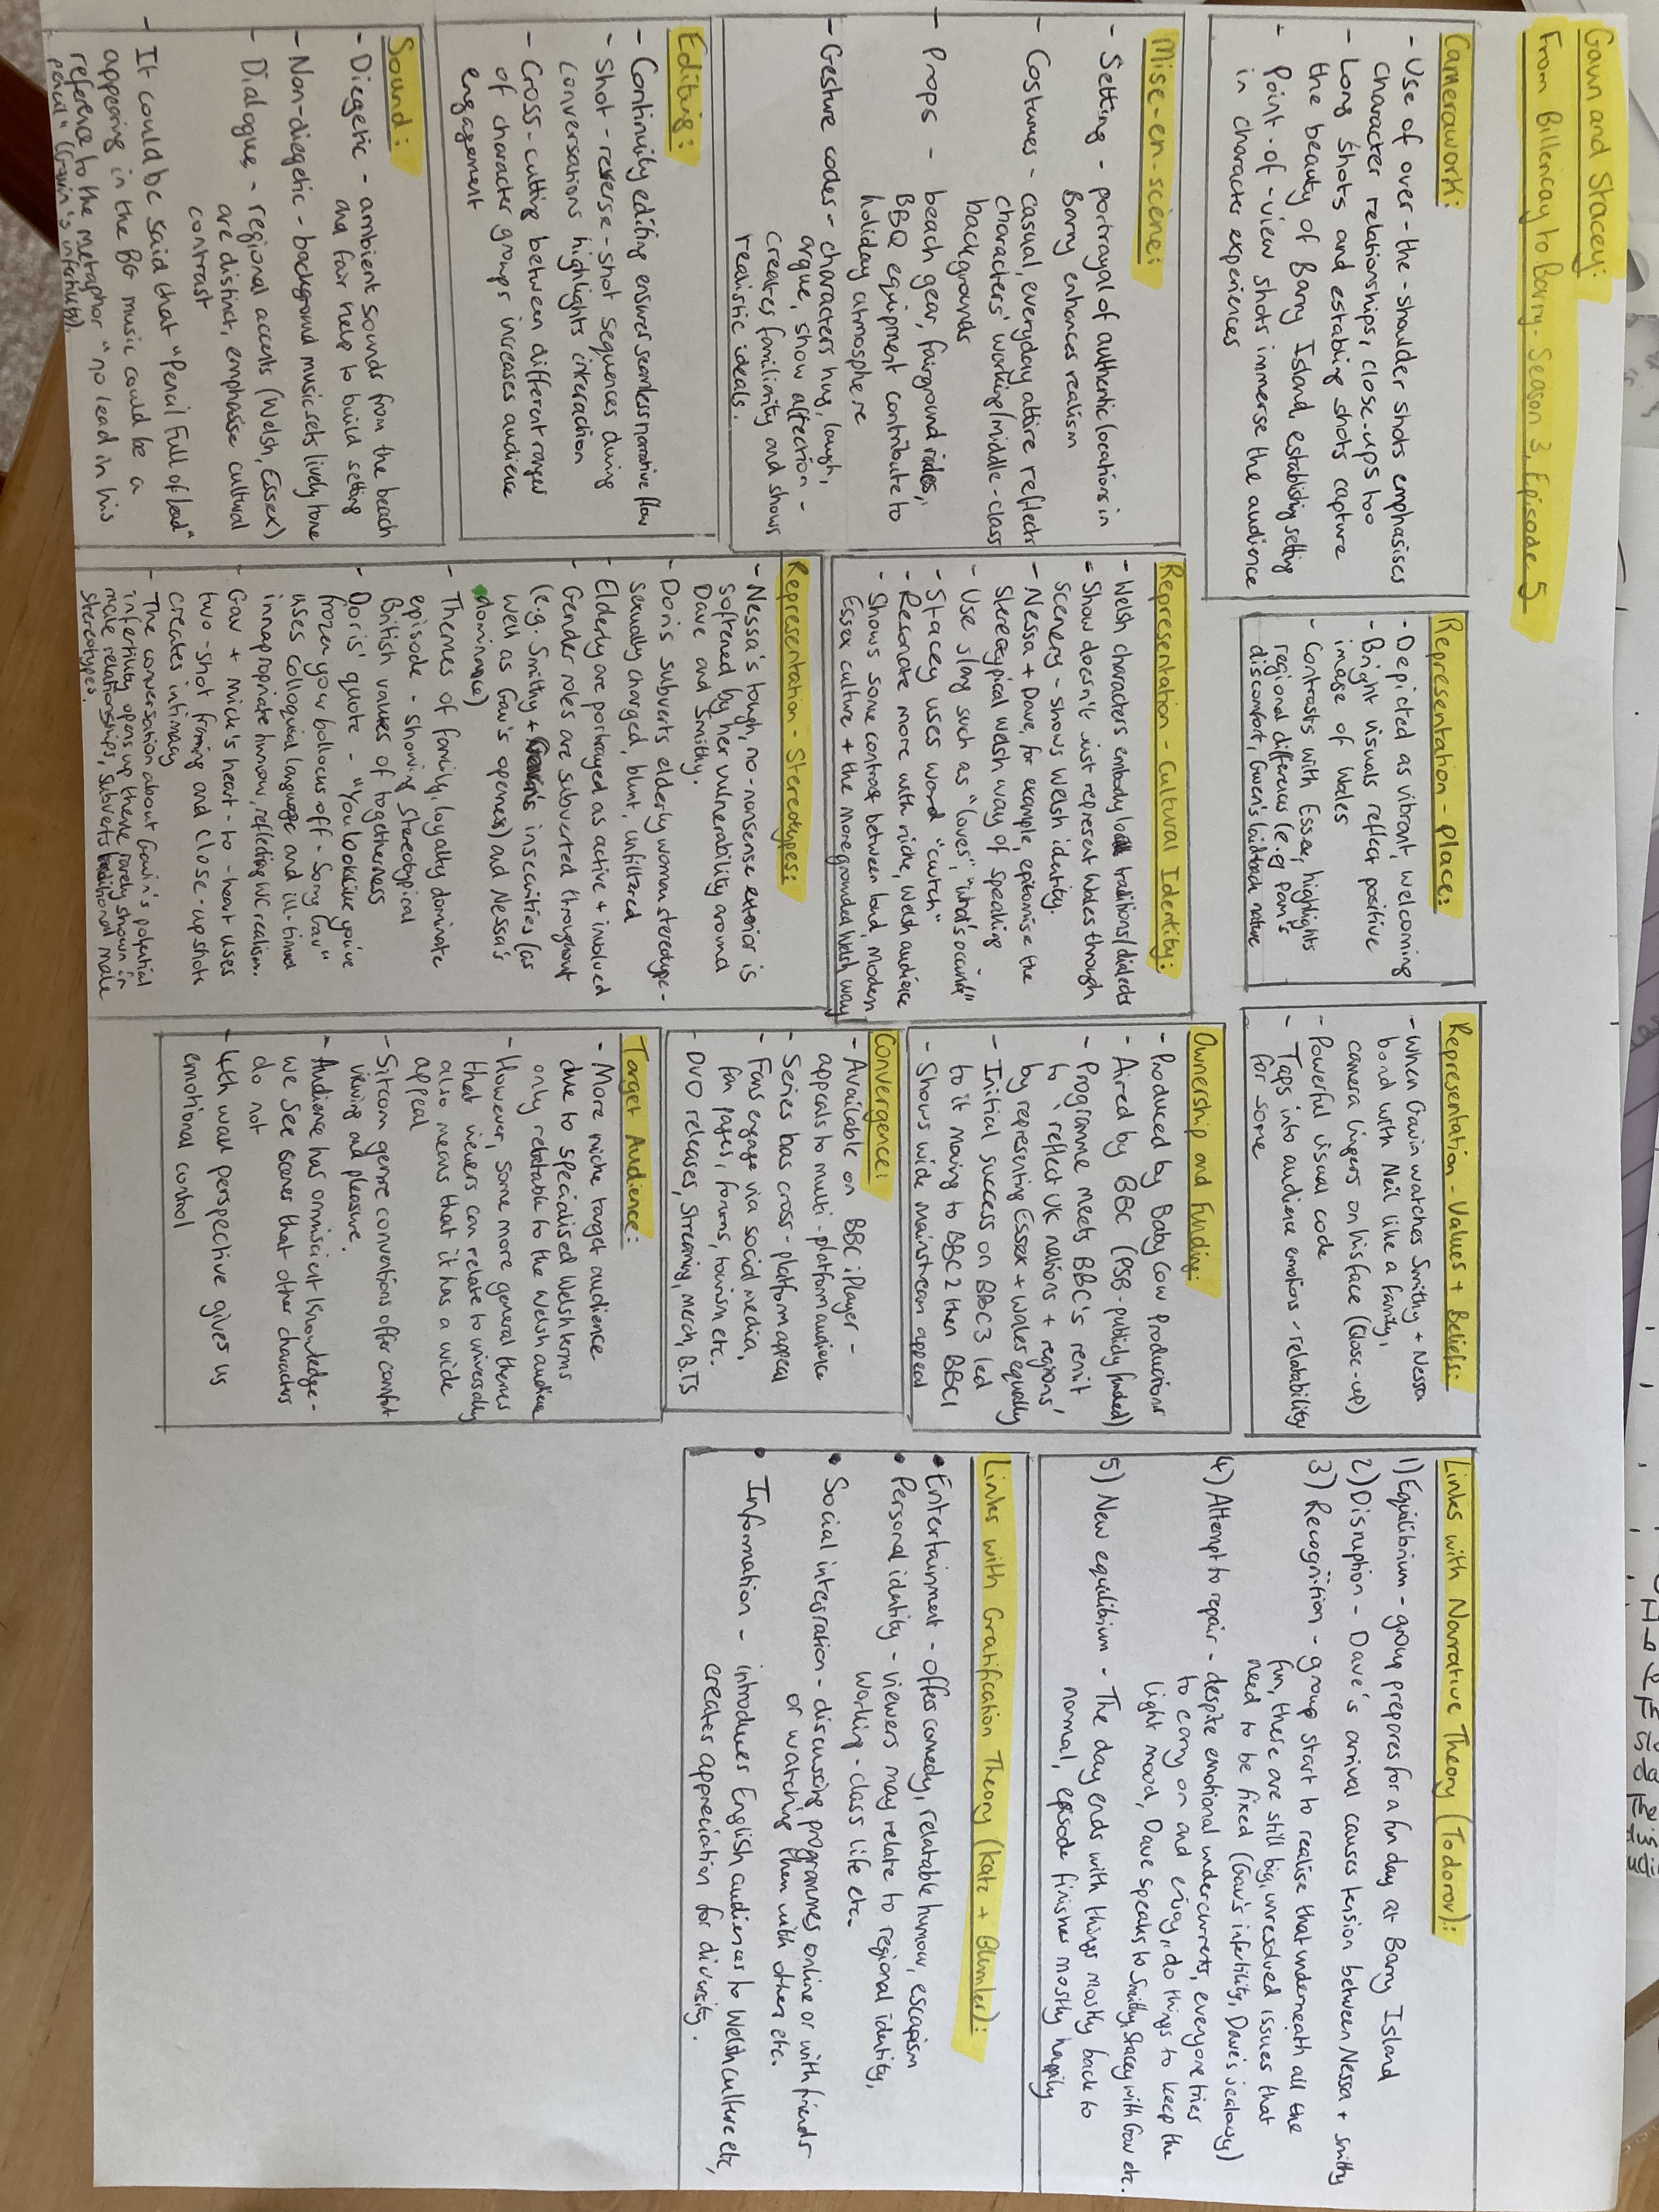 Gavin and Stacey:
From Billericay to Barry - Season 3, Episode 5
Camerawork:
- Use of over-the-shoulder shots emphasises
character relationships, close-ups too
- Long shots and establing shots capture
the beauty of Barry Island, establishing setting
- Point-of-view shots immerse the audience
in characters experiences
Mise-en-scene:
- Setting - portrayal of authentic locations in
Barry enhances realism
- Costumes - casual, everyday attire reflects
characters' working/middle-class
backgrounds
- Props - beach gear, fairground rides,
BBQ equipment contribute to
holiday atmosphere
- Gesture codes - characters hug, laugh,
argue, show affection -
creates familiarity and shows
realistic ideals.
Editing:
- Continuity editing ensures seamless narrative flow
- Shot-reverse-shot sequences during
conversations highlights interaction
- Cross-cutting between different ranges
of character groups increases audience
engagement
Sound:
- Diegetic - ambient sounds from the beach
and fair help to build setting
- Non-diegetic - background music sets lively tone
- Dialogue - regional accents (Welsh, Essex)
are distinct, emphasise cultural
contrast
- It could be said that "Pencil Full of Lead"
appearing in the BG music could be a
reference to the metaphor "no lead in his
pencil" (Gavin's infertility).
Representation - place:
- Depicted as vibrant, welcoming
- Bright visuals reflect positive
image of Wales
- Contrasts with Essex, highlights
regional differences (e.g. Pam's
discomfort, Gwen's laidback nature
Representation - Cultural Identity:
- Welsh characters embody traditions/dialects
- Show doesn't just represent Wales through
scenery - shows Welsh identity.
- Nessa + Dave, for example, epitomise the
stereotypical Welsh way of speaking
- Use slang such as "loves", "what's occurin"
- Stacey uses word "cwtch"
- Resonate more with niche, Welsh audience
- Shows some contrast between loud, modern
Essex culture + the more grounded Welsh way
Representation - Stereotypes:
- Nessa's tough, no-nonsense exterior is
softened by her vulnerability around
Dave and Smithy.
- Doris subverts elderly woman stereotype -
sexually charged, blunt, unfiltered
- Elderly are portrayed as active + involved
- Gender roles are subverted throughout
(e.g. Smithy + Gavin's insecurities (as
well as Gav's openness) and Nessa's
dominance)
- Themes of family, loyalty dominate
episode - showing stereotypical
British values of togetherness
- Doris' quote - "You look like you've
frozen your bollocks off - Sorry Gav"
uses colloquial language and ill-timed
innapropriate humour, reflecting WC realism.
- Gav + Mick's heart-to-heart uses
two-shot framing and close-up shots
creates intimacy
- The conversation about Gavin's potential
infertility opens up theme rarely shown in
male relationships, subverts traditional male
stereotypes.
Representation - Values + Beliefs:
- When Gavin watches Smithy + Nessa
bond with Neil like a family,
camera lingers on his face (close-up)
- Powerful visual code
- Taps into audience emotions - relatability
for some
Ownership and Funding:
- Produced by Baby Cow Productions
- Aired by BBC (PSB - publicly funded)
- Programme meets BBC's remit
to 'reflect UK nations + regions'
by representing Essex + Wales equally
- Initial success on BBC3 led
to it moving to BBC2 then BBC1
- Shows wide mainstream appeal
Convergence:
- Available on BBC iPlayer -
appeals to multi-platform audience
- Series has cross-platform appeal
- Fans engage via social media,
fan pages, forums, tourism etc.
- DVD releases, streaming, merch, B.TS
Target Audience:
- More niche target audience
due to specialised Welsh terms
only relatable to the Welsh audience
- However, some more general themes
that viewers can relate to universally
also means that it has a wide
appeal
- Sitcom genre conventions offer comfort
viewing and pleasure.
- Audience has omniscient knowledge -
we see scenes that other characters
do not
- 4th wall perspective gives us
emotional control
Links with Narrative Theory (Todorov):
1) Equilibrium - group prepares for a fun day at Barry Island
2) Disruption - Dave's arrival causes tension between Nessa + Smithy
3) Recognition - group start to realise that underneath all the
fun, there are still big, unresolved issues that
need to be fixed (Gav's infertility, Dave's jealousy)
4) Attempt to repair - despite emotional undercurrents, everyone tries
to carry on and enjoy, do things to keep the
light mood, Dave speaks to Smithy, Stacey with Gav etc.
5) New equilibrium - The day ends with things mostly back to
normal, episode finishes mostly happily
Links with Gratification Theory (Katz + Blumler):
• Entertainment - offers comedy, relatable humour, escapism
• Personal identity - viewers may relate to regional identity,
working-class life etc.
• Social integration - discussing programmes online or with friends
or watching them with others etc.
• Information - introduces English audiences to Welsh culture etc,
creates appreciation for diversity.